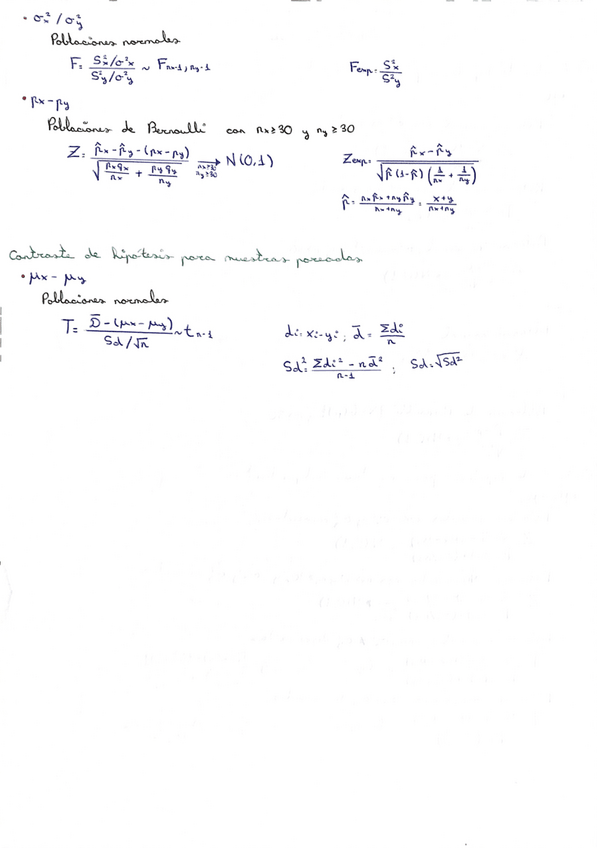 • σx² / σy²
Poblaciones normales
F = (Sx²/σ²x) / (S²y/σ²y) ~ F nx-1, ny-1    Fexp = S²x / S²y
• px - py
Poblaciones de Bernoulli con nx ≥ 30 y ny ≥ 30
Z = (p̂x - p̂y - (px - py)) / √(px qx / nx + py qy / ny) → (nx≥30, ny≥30) N(0,1)    Zexp = (p̂x - p̂y) / √(p̂ (1-p̂) (1/nx + 1/ny))
p̂ = (nx p̂x + ny p̂y) / (nx + ny) = (x + y) / (nx + ny)
Contraste de hipótesis para muestras pareadas
• μx - μy
Poblaciones normales
T = (D̄ - (μx - μy)) / (Sd / √n) ~ t n-1    di = xi - yi ; d̄ = Σdi / n
Sd² = (Σdi² - n d̄²) / (n-1) ; Sd = √Sd²